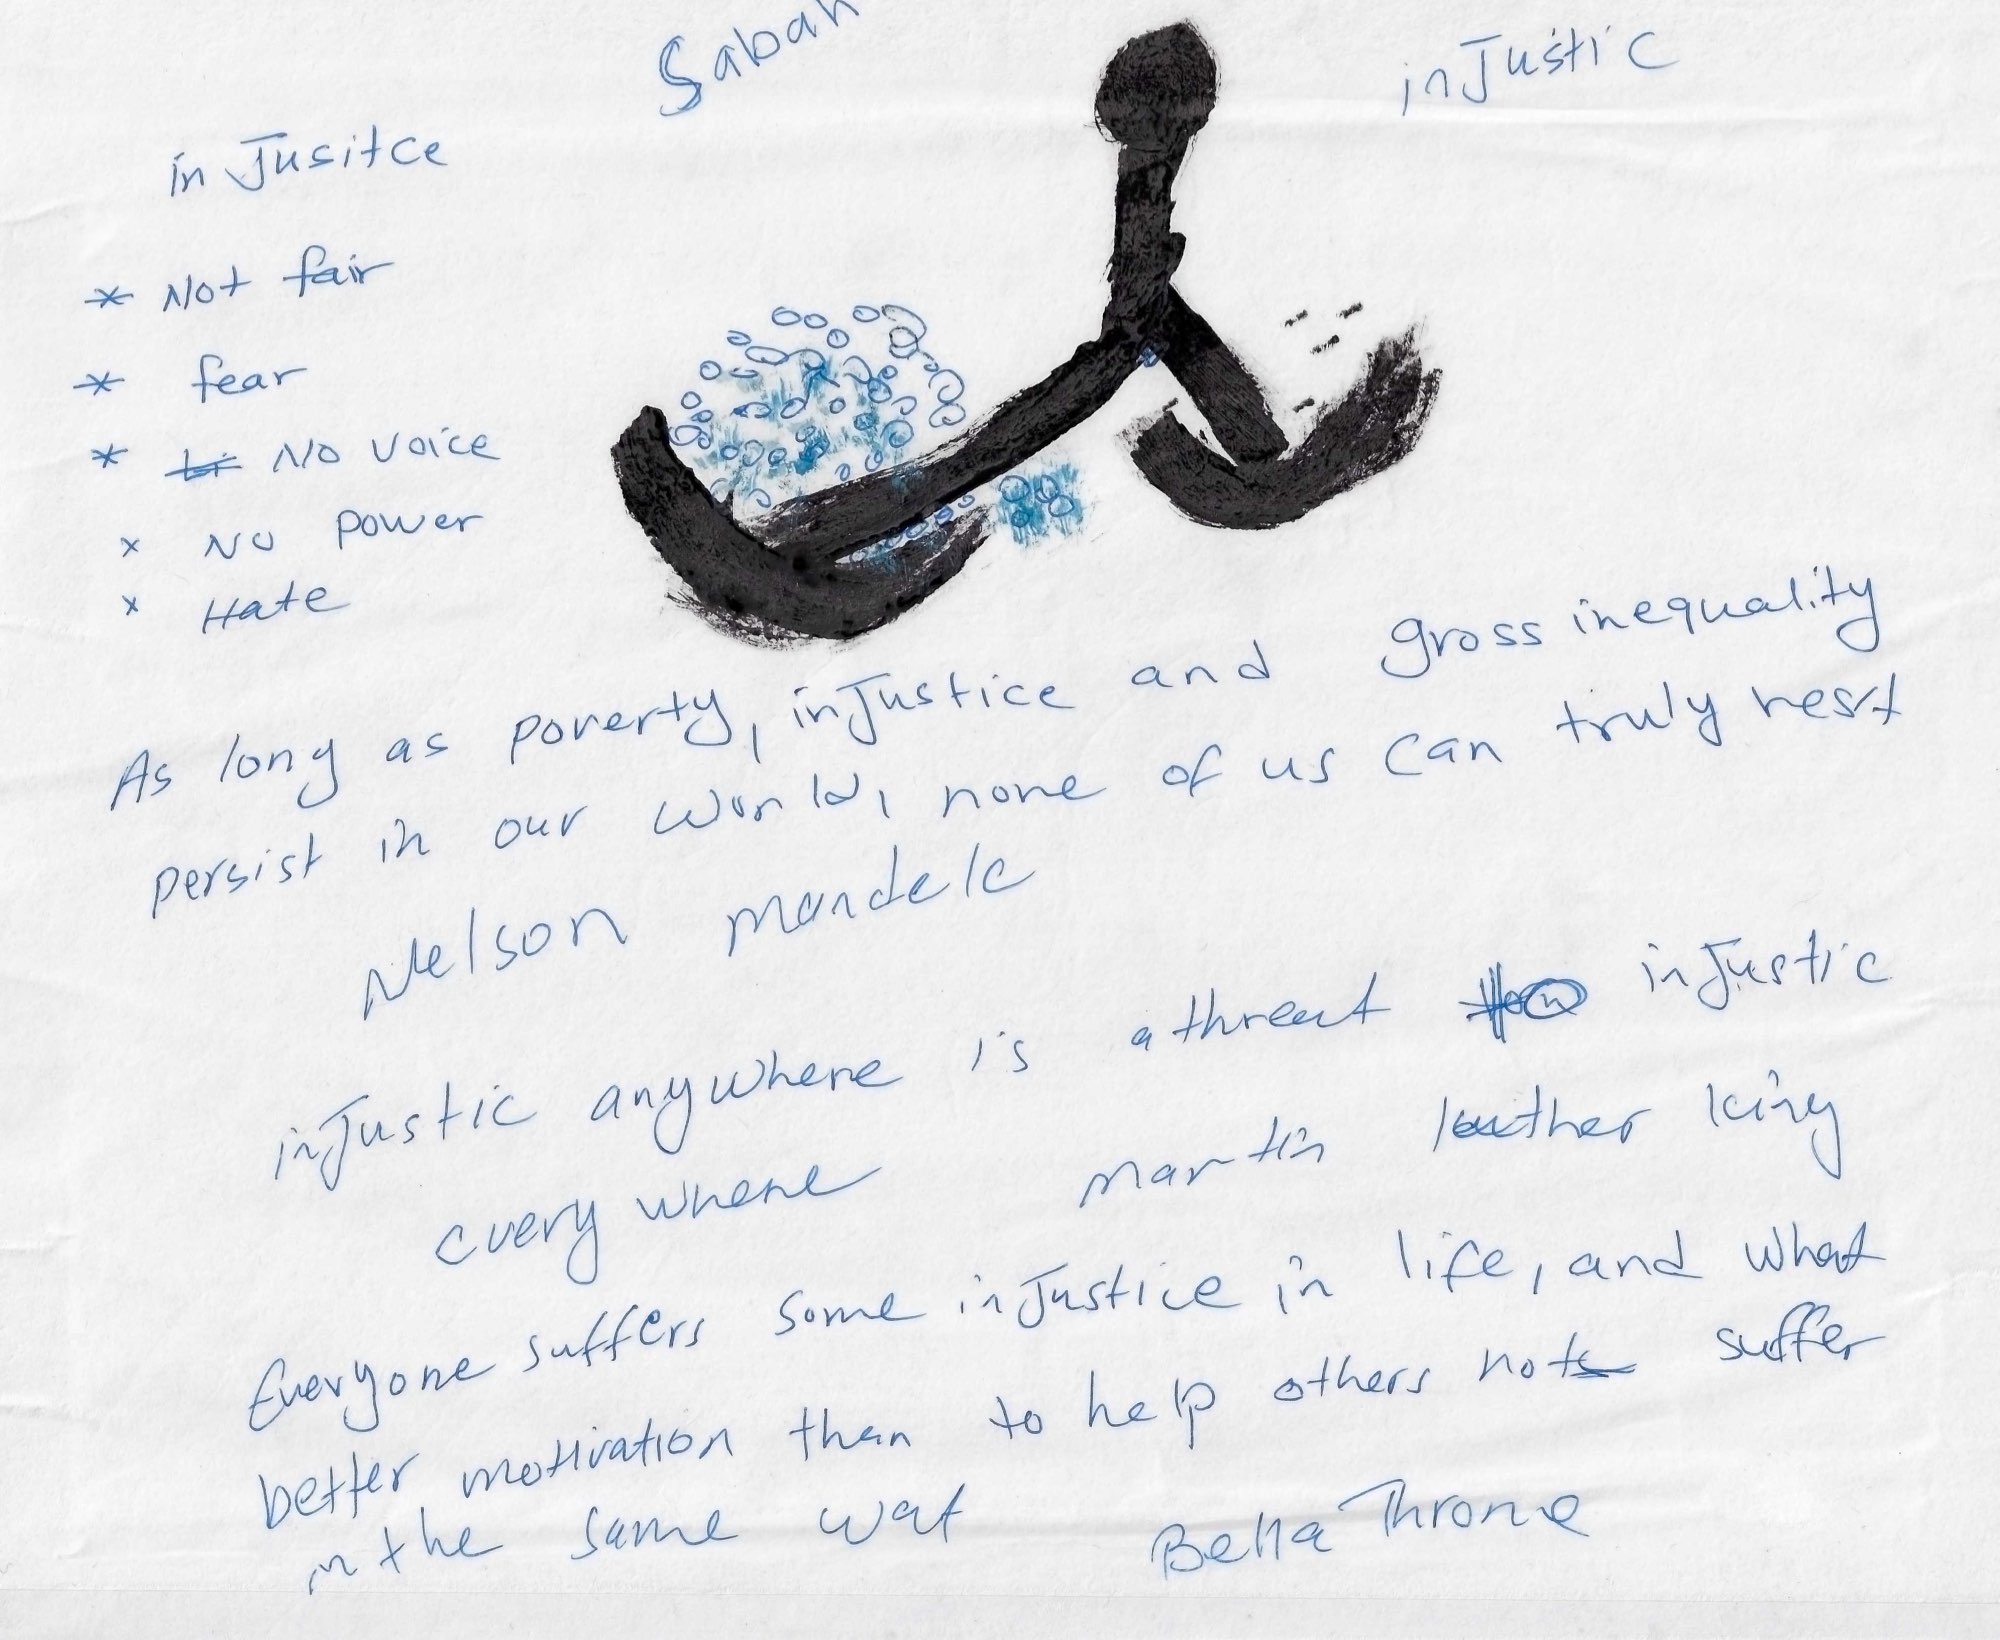 Sabah
inJustic
in Jusitce
* Not fair
* fear
* No voice
x No power
x Hate
As long as poverty, inJustice and gross inequality
persist in our world, none of us can truly rest
Nelson mandela
inJustic anywhere is a threat to inJustic
every where martin luther king
Everyone suffers some inJustice in life, and what
better motivation than to help others not suffer
in the same wat Bella Throne